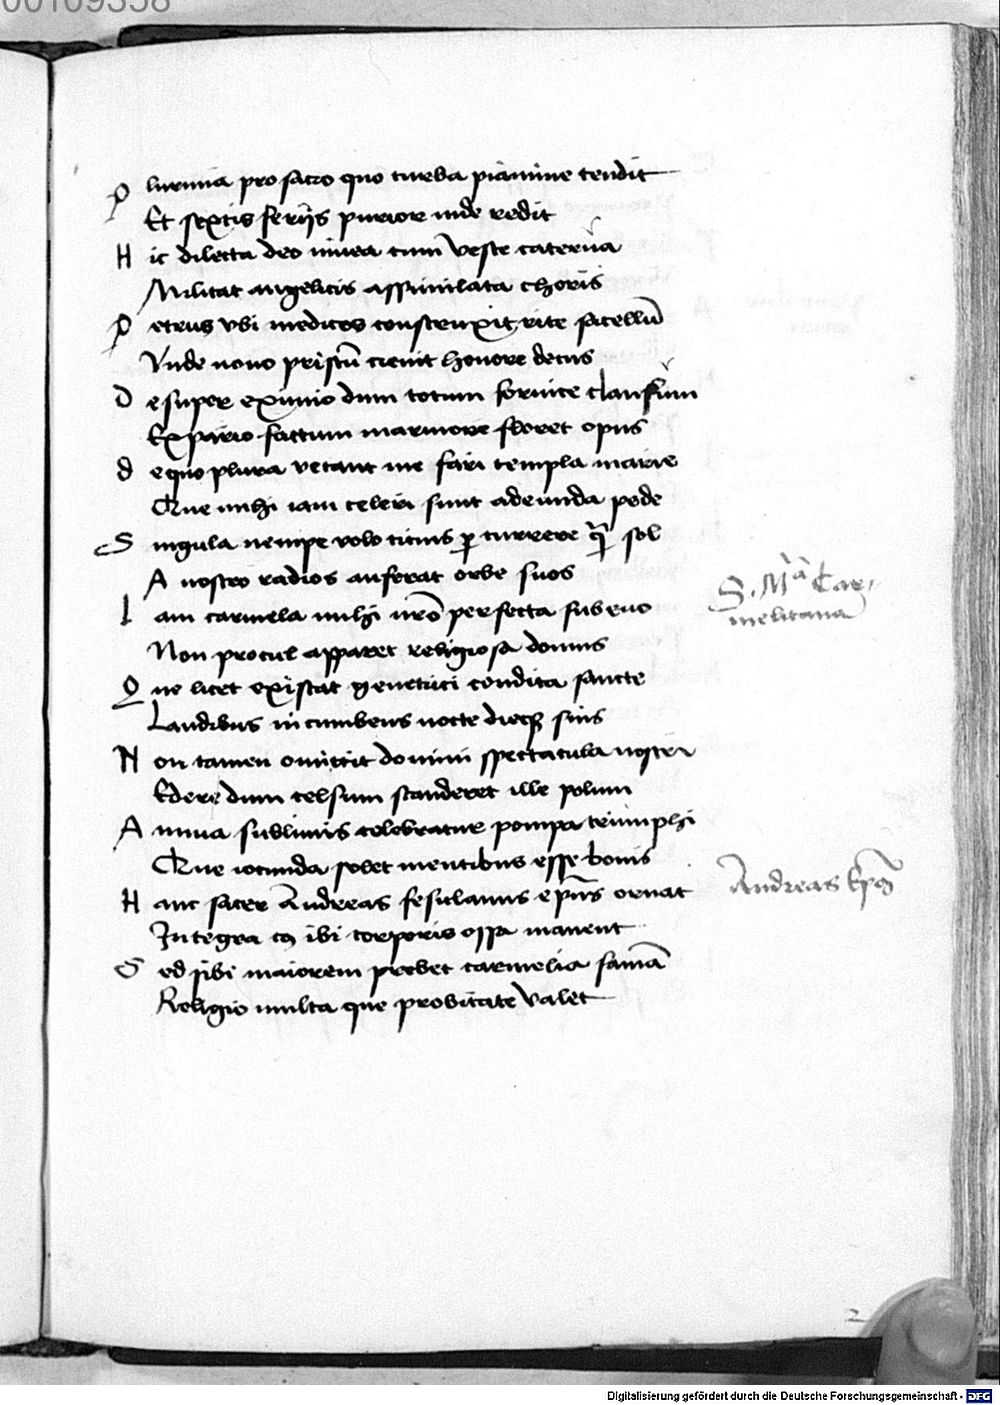 00109358
Plurima pro sacro quo turba piamine tendit
Et sextis ferijs purior inde redit
Hic dilecta deo niuea cum veste caterua
Militat angelicis assimilata choris
Petrus vbi medices construxit rite sacellū
Vnde nouo priscū creuit honore decus
Desuper eximio dum totum fornice clausum
Ex pario factum marmore floret opus
de quo plura vetant me fari templa marie
Que mihi iam celeri sunt adeunda pede
Singula nempe volo citius ꝑ currere q̄ sol
A nostro radios auferat orbe suos
Iam carmela mihi nrō perfecta subeuo
Non procul apparet religiosa domus
Que licet existat genetrici condita sancte
Laudibus incumbens nocte dieqꝫ suis
Non tamen omittit domini spectacula nostri
Edere dum celsum scanderet ille polum
Annua sublimis celebratur pompa triumphi
Que iocunda solet mentibus esse bonis
Hanc sacer Andreas fesulanus ep̄us ornat
Integra cꝫ ibi corporis ossa manent
Sed sibi maiorem prebet carmelia famā
Religio multa que probitate valet
S. Mᵃ Car,
melitana
Andreas Ep̄s
2
Digitalisierung gefördert durch die Deutsche Forschungsgemeinschaft - DFG